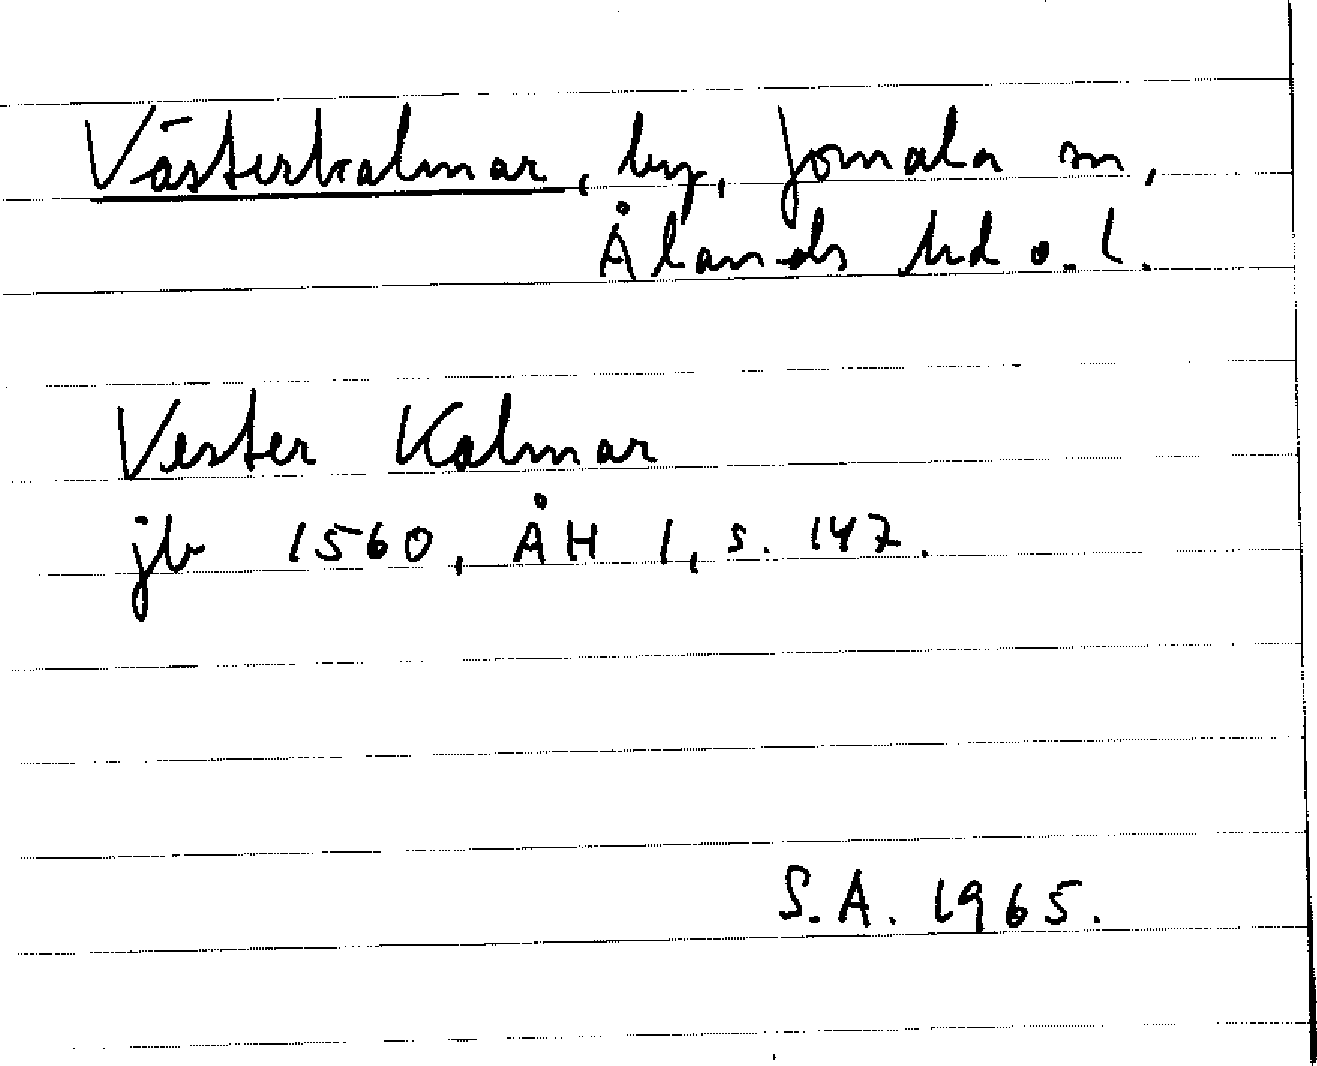 Västerkalmar, by, Jomala sn,
Ålands hd o. l.
Vester Kalmar
jb 1560, ÅH 1, s. 147.
S.A. 1965.